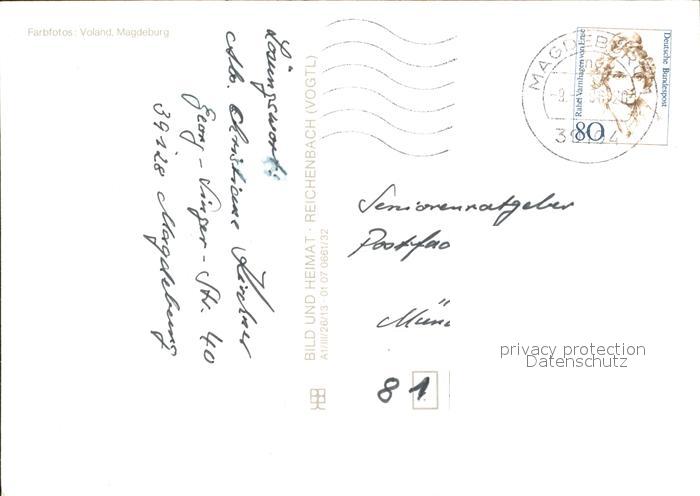 Farbfotos: Voland, Magdeburg
Lösungswort:
Abs. Christiane Kirchner
Georg-Singer-Str. 40
39128 Magdeburg
BILD UND HEIMAT · REICHENBACH (VOGTL)
A1/III/26/13 · 01 07 0661/32
MAGDEBURG
Deutsche Bundespost
Rahel Varnhagen von Ense
80
Seniorenratgeber
Postfac
Mün
81
privacy protection
Datenschutz